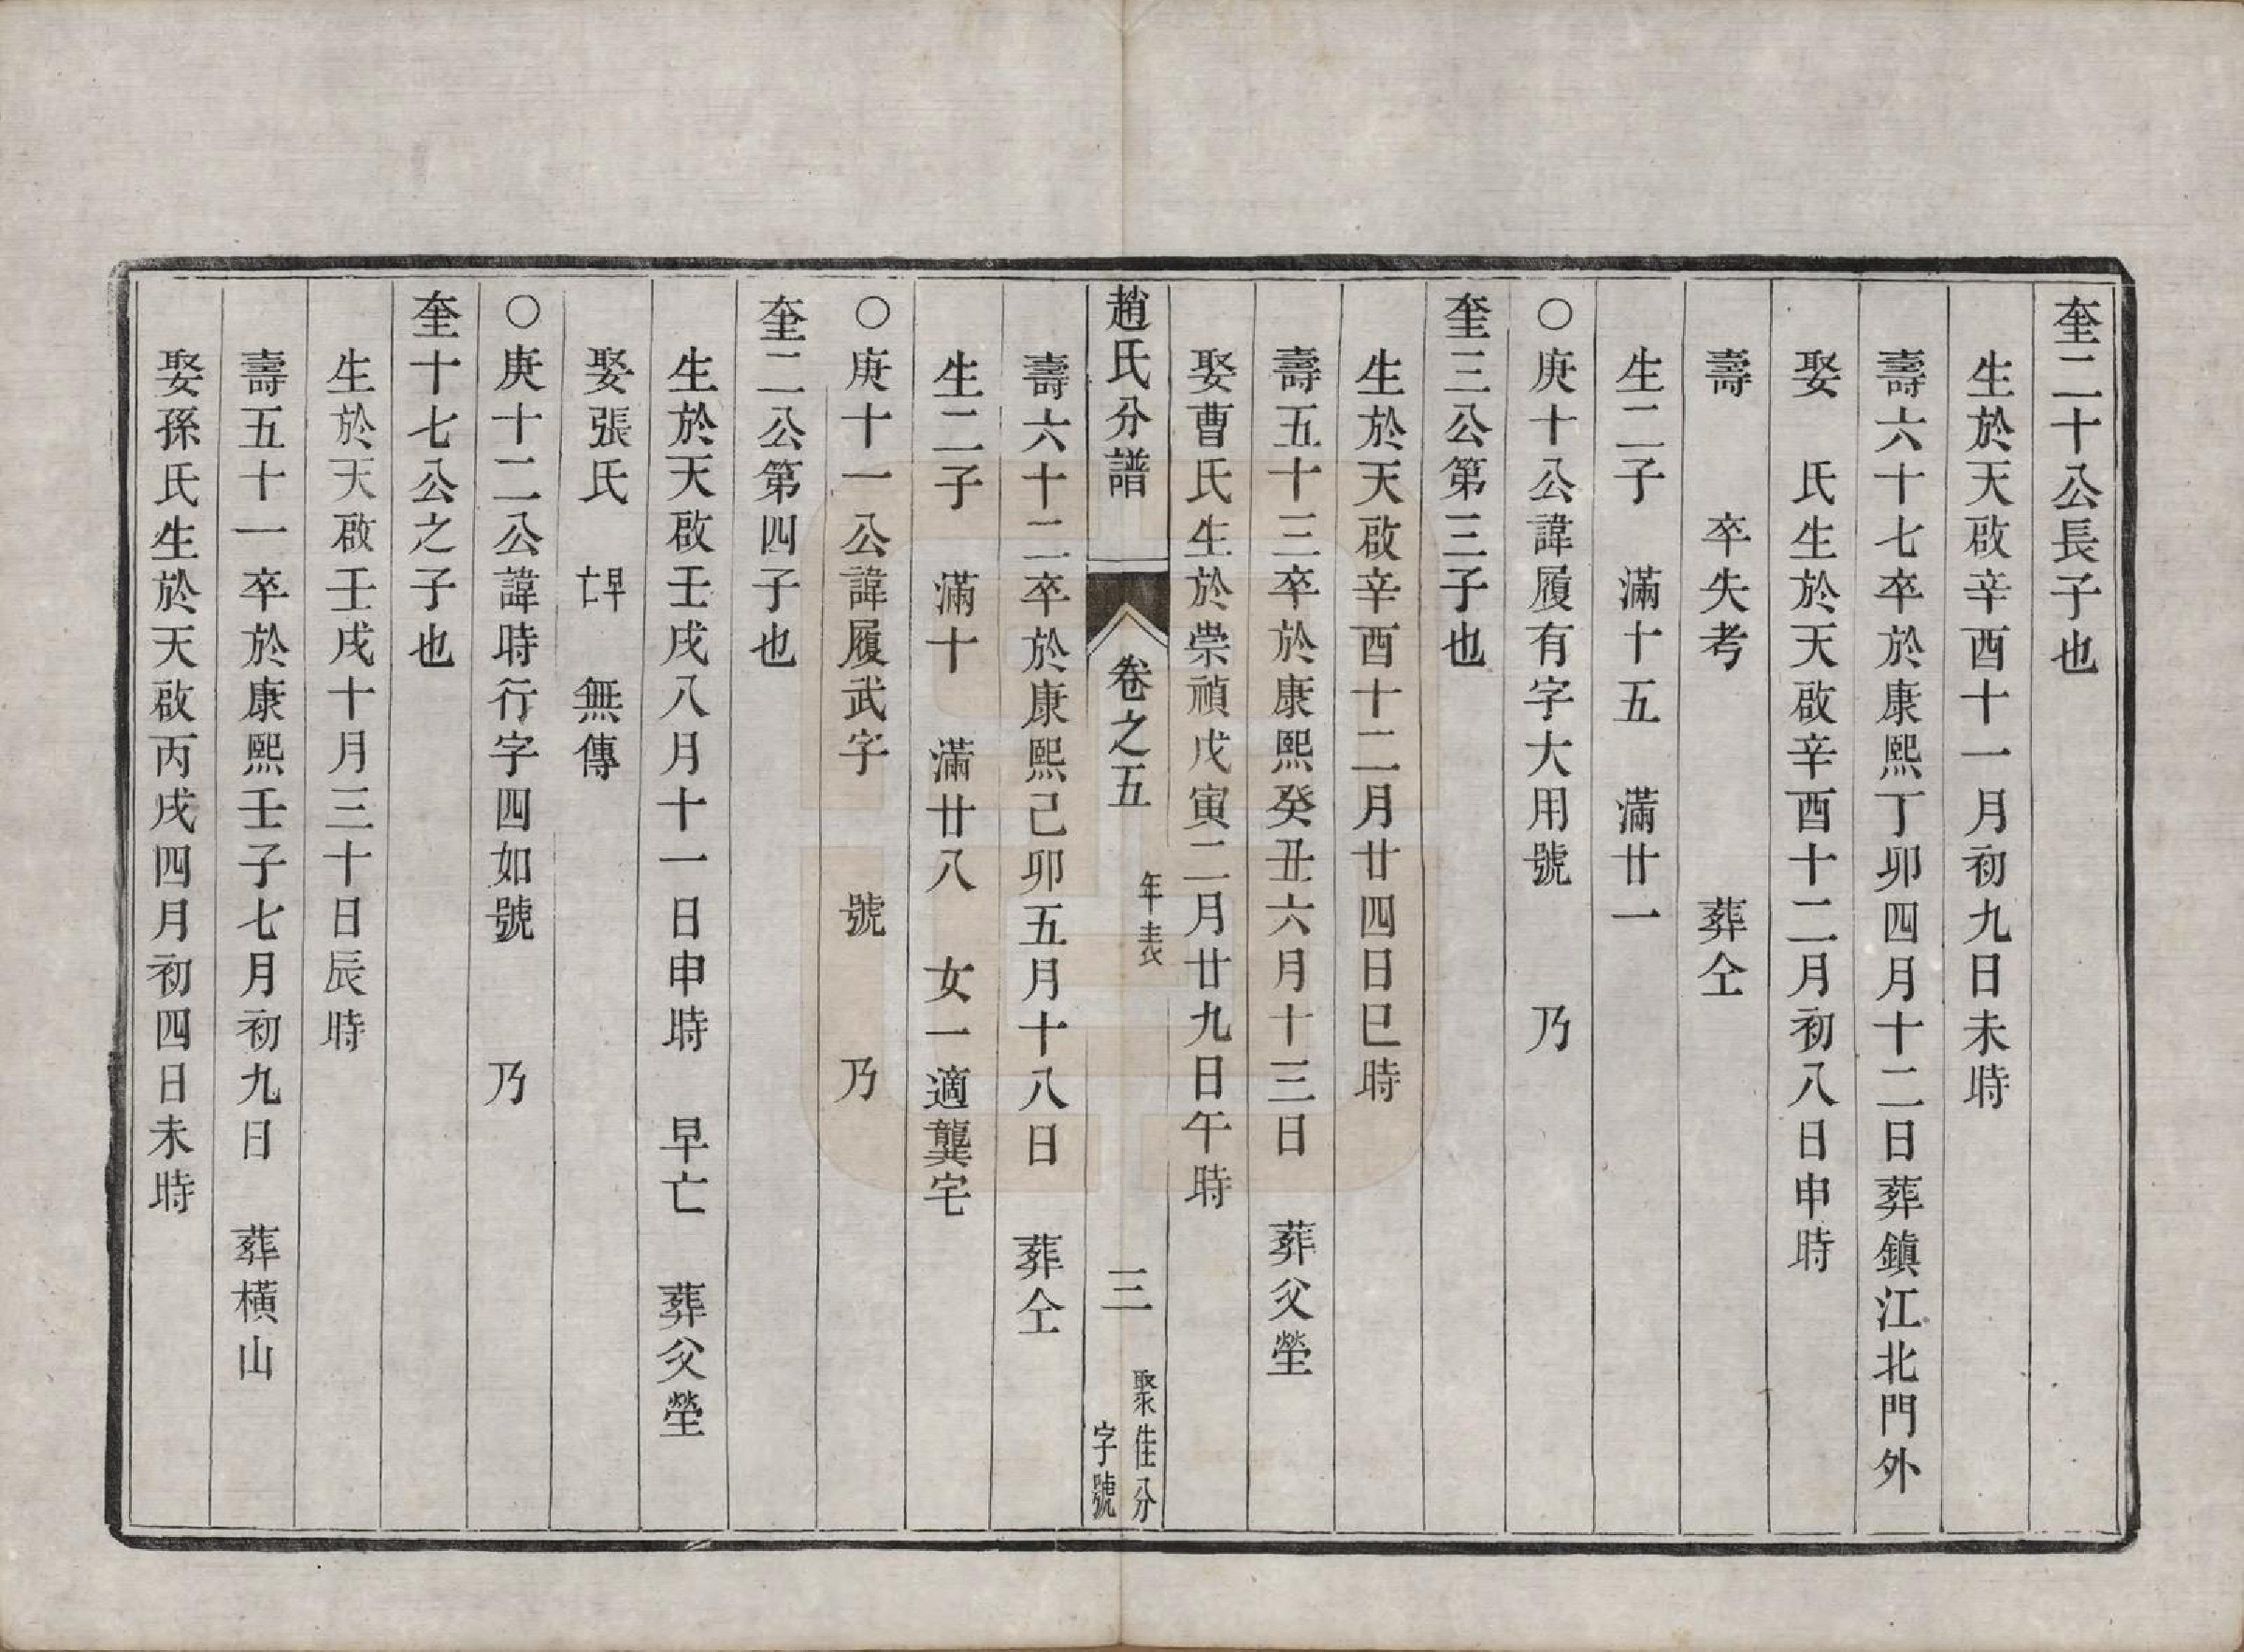 奎二十公長子也
生於天啟辛酉十一月初九日未時
壽六十七卒於康熙丁卯四月十二日葬鎮江北門外
娶　氏生於天啟辛酉十二月初八日申時
壽　　卒失考　　　　葬仝
生二子　滿十五　滿廿一
○庚十公諱履有字大用號　　乃
奎三公第三子也
生於天啟辛酉十二月廿四日巳時
壽五十三卒於康熙癸丑六月十三日　葬父塋
娶曹氏生於崇禎戊寅二月廿九日午時
趙氏分譜　卷之五　年表　三　聚佳分字號
壽六十二卒於康熙己卯五月十八日　葬仝
生二子　滿十　滿廿八　女一適龔宅
○庚十一公諱履武字　　號　　乃
奎二公第四子也
生於天啟壬戌八月十一日申時　早亡　葬父塋
娶張氏　早亡　無傳
○庚十二公諱時行字四如號　　乃
奎十七公之子也
生於天啟壬戌十月三十日辰時
壽五十一卒於康熙壬子七月初九日　葬橫山
娶孫氏生於天啟丙戌四月初四日未時